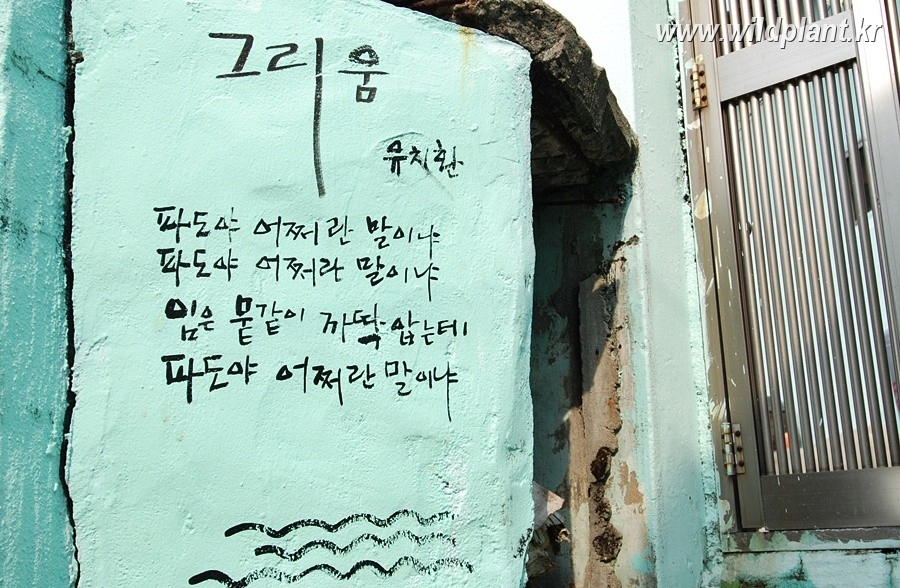 www.wildplant.kr
그리움
유치환
파도야 어쩌란 말이냐
파도야 어쩌란 말이냐
임은 뭍같이 까딱 않는데
파도야 어쩌란 말이냐